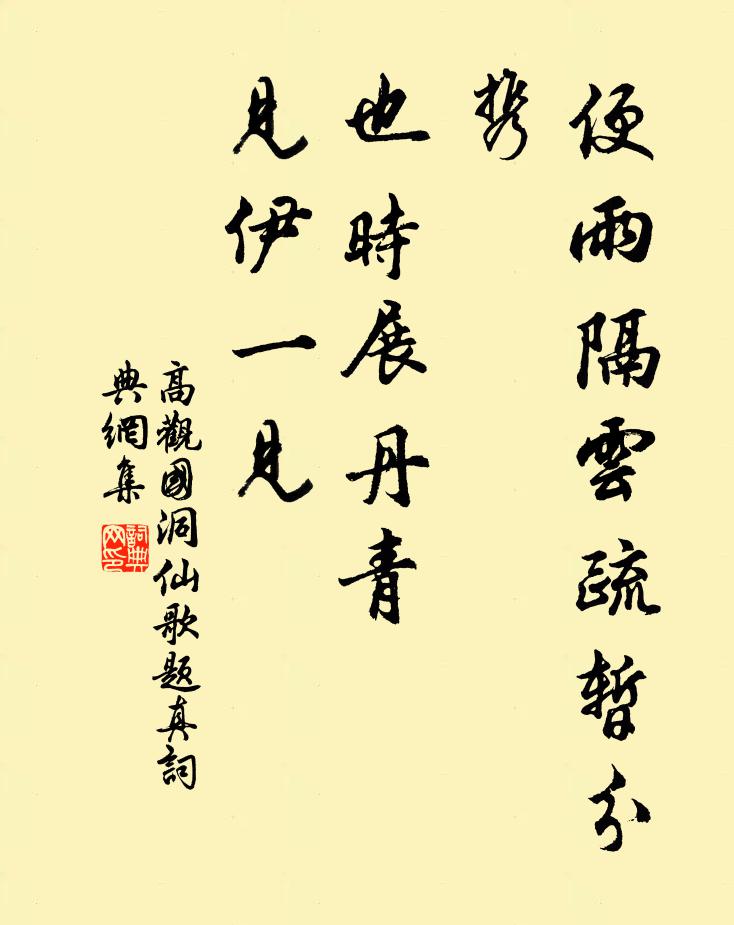 便雨隔雲疏暫分
携
也時展丹青
見伊一見
高觀國洞仙歌題真詞
典網集
詞典網印